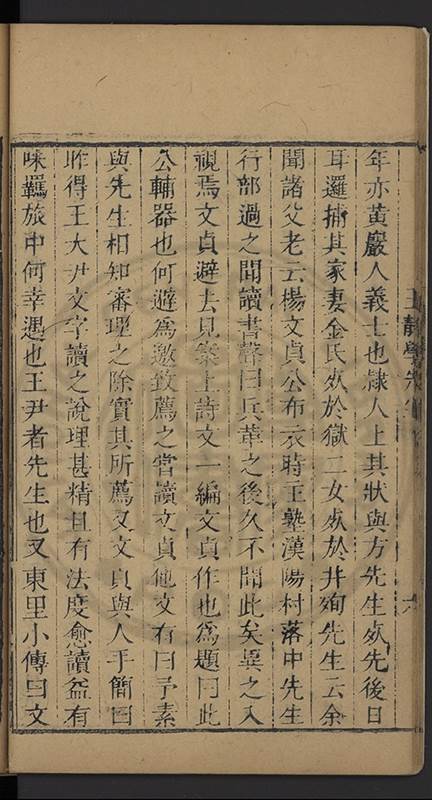 年亦黃巖人義士也隷人上其狀與方先生䠂先後日
耳邏捕其家妻金氏䠂於獄二女䠂於井殉先生云余
聞諸父老云楊文貞公布衣時主塾漢陽村落中先生
行部過之聞讀書聲曰兵革之後久不聞此矣異之入
視焉文貞避去見案上詩文一編文貞作也為題曰此
公輔器也何避為邀致薦之嘗讀文貞他文有曰予素
與先生相知審理之除實其所薦又文貞與人手簡曰
昨得王大尹文字讀之說理甚精且有法度愈讀益有
味羈旅中何幸遇也王尹者先生也又東里小傳曰文